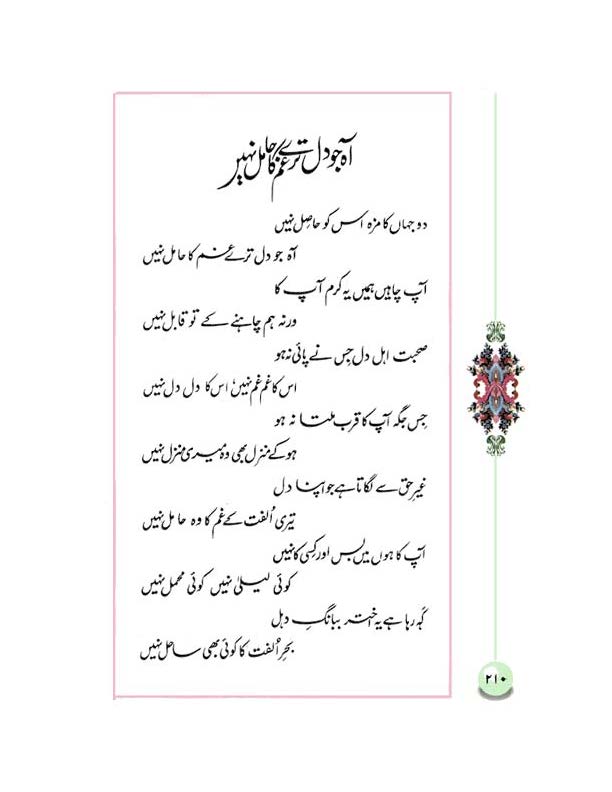 آہ جو دل ترے غم کا حامل نہیں
دو جہاں کا مزہ اس کو حاصل نہیں
آہ جو دل ترے غم کا حامل نہیں
آپ چاہیں ہمیں یہ کرم آپ کا
ورنہ ہم چاہنے کے تو قابل نہیں
صحبت اہل دل جس نے پائی نہ ہو
اس کا غم غم نہیں اس کا دل دل نہیں
جس جگہ آپ کا قرب ملتا نہ ہو
ہو کے منزل بھی وہ میری منزل نہیں
غیرِ حق سے لگاتا ہے جو اپنا دل
تیری اُلفت کے غم کا وہ حامل نہیں
آپ کا ہوں میں بس اور کسی کا نہیں
کوئی لیلیٰ نہیں کوئی محمل نہیں
کہہ رہا ہے یہ اختر ببانگِ دہل
بحرِ اُلفت کا کوئی بھی ساحل نہیں
۲۱۰